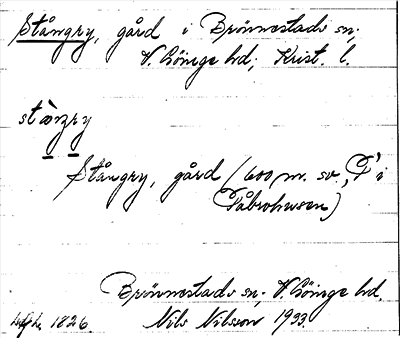 Stångry, gård i Brönnestads sn;
V. Göinge hd; Krist. l.
stàngry
Stångry, gård (600 m. sv. "T" i
Påbrohusen)
Brönnestads sn; V. Göinge hd.
1826. Nils Nilsson 1933.